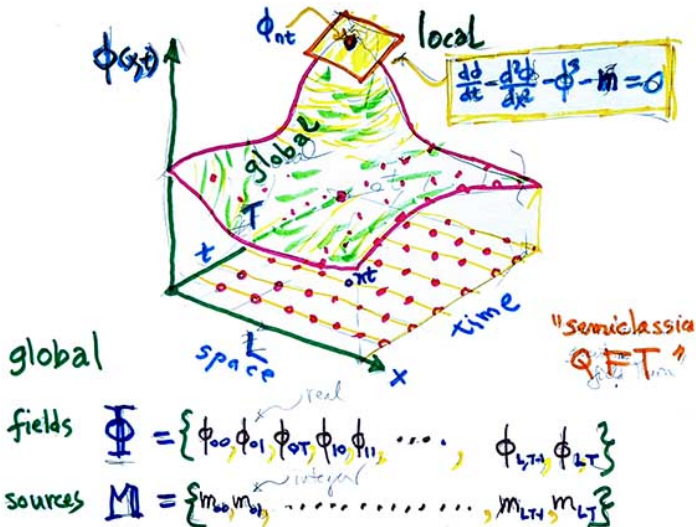 ϕₙₜ local
ϕ(x,t)
dϕ/dt - d²ϕ/dx² - ϕ³ - m = 0
global
T
t
nt
time
L
space
x
"semiclassica
QFT"
global
real
fields Φ = {ϕ₀₀, ϕ₀₁, ϕ₀T, ϕ₁₀, ϕ₁₁, ....., ϕL,T-1, ϕLT}
integer
sources M = {m₀₀, m₀₁, ..............., mLT-1, mLT}